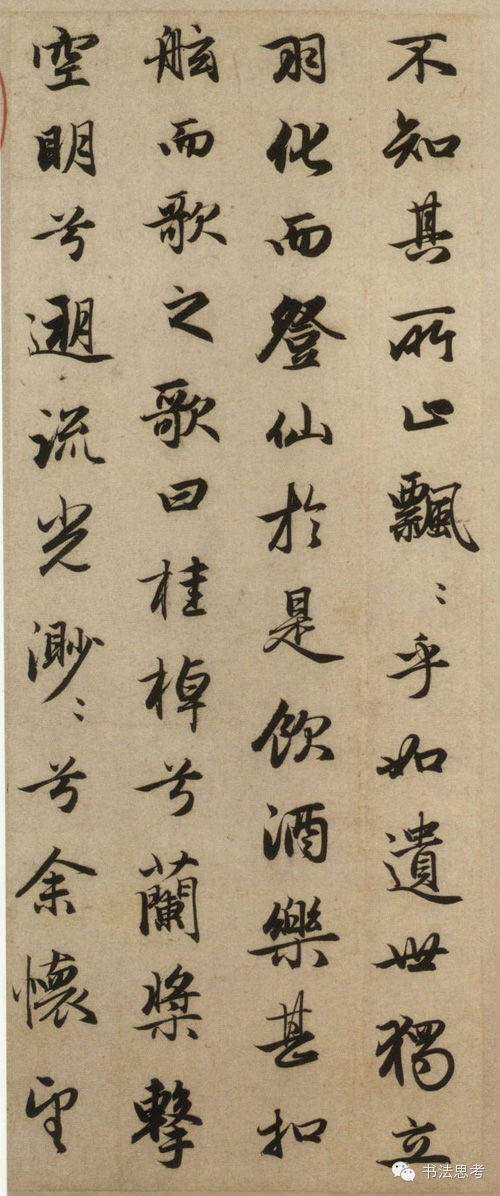 不知其所止飄〻乎如遺世獨立
羽化而登仙於是飲酒樂甚扣
舷而歌之歌曰桂棹兮蘭槳擊
空明兮遡流光渺〻兮余懷望
书法思考